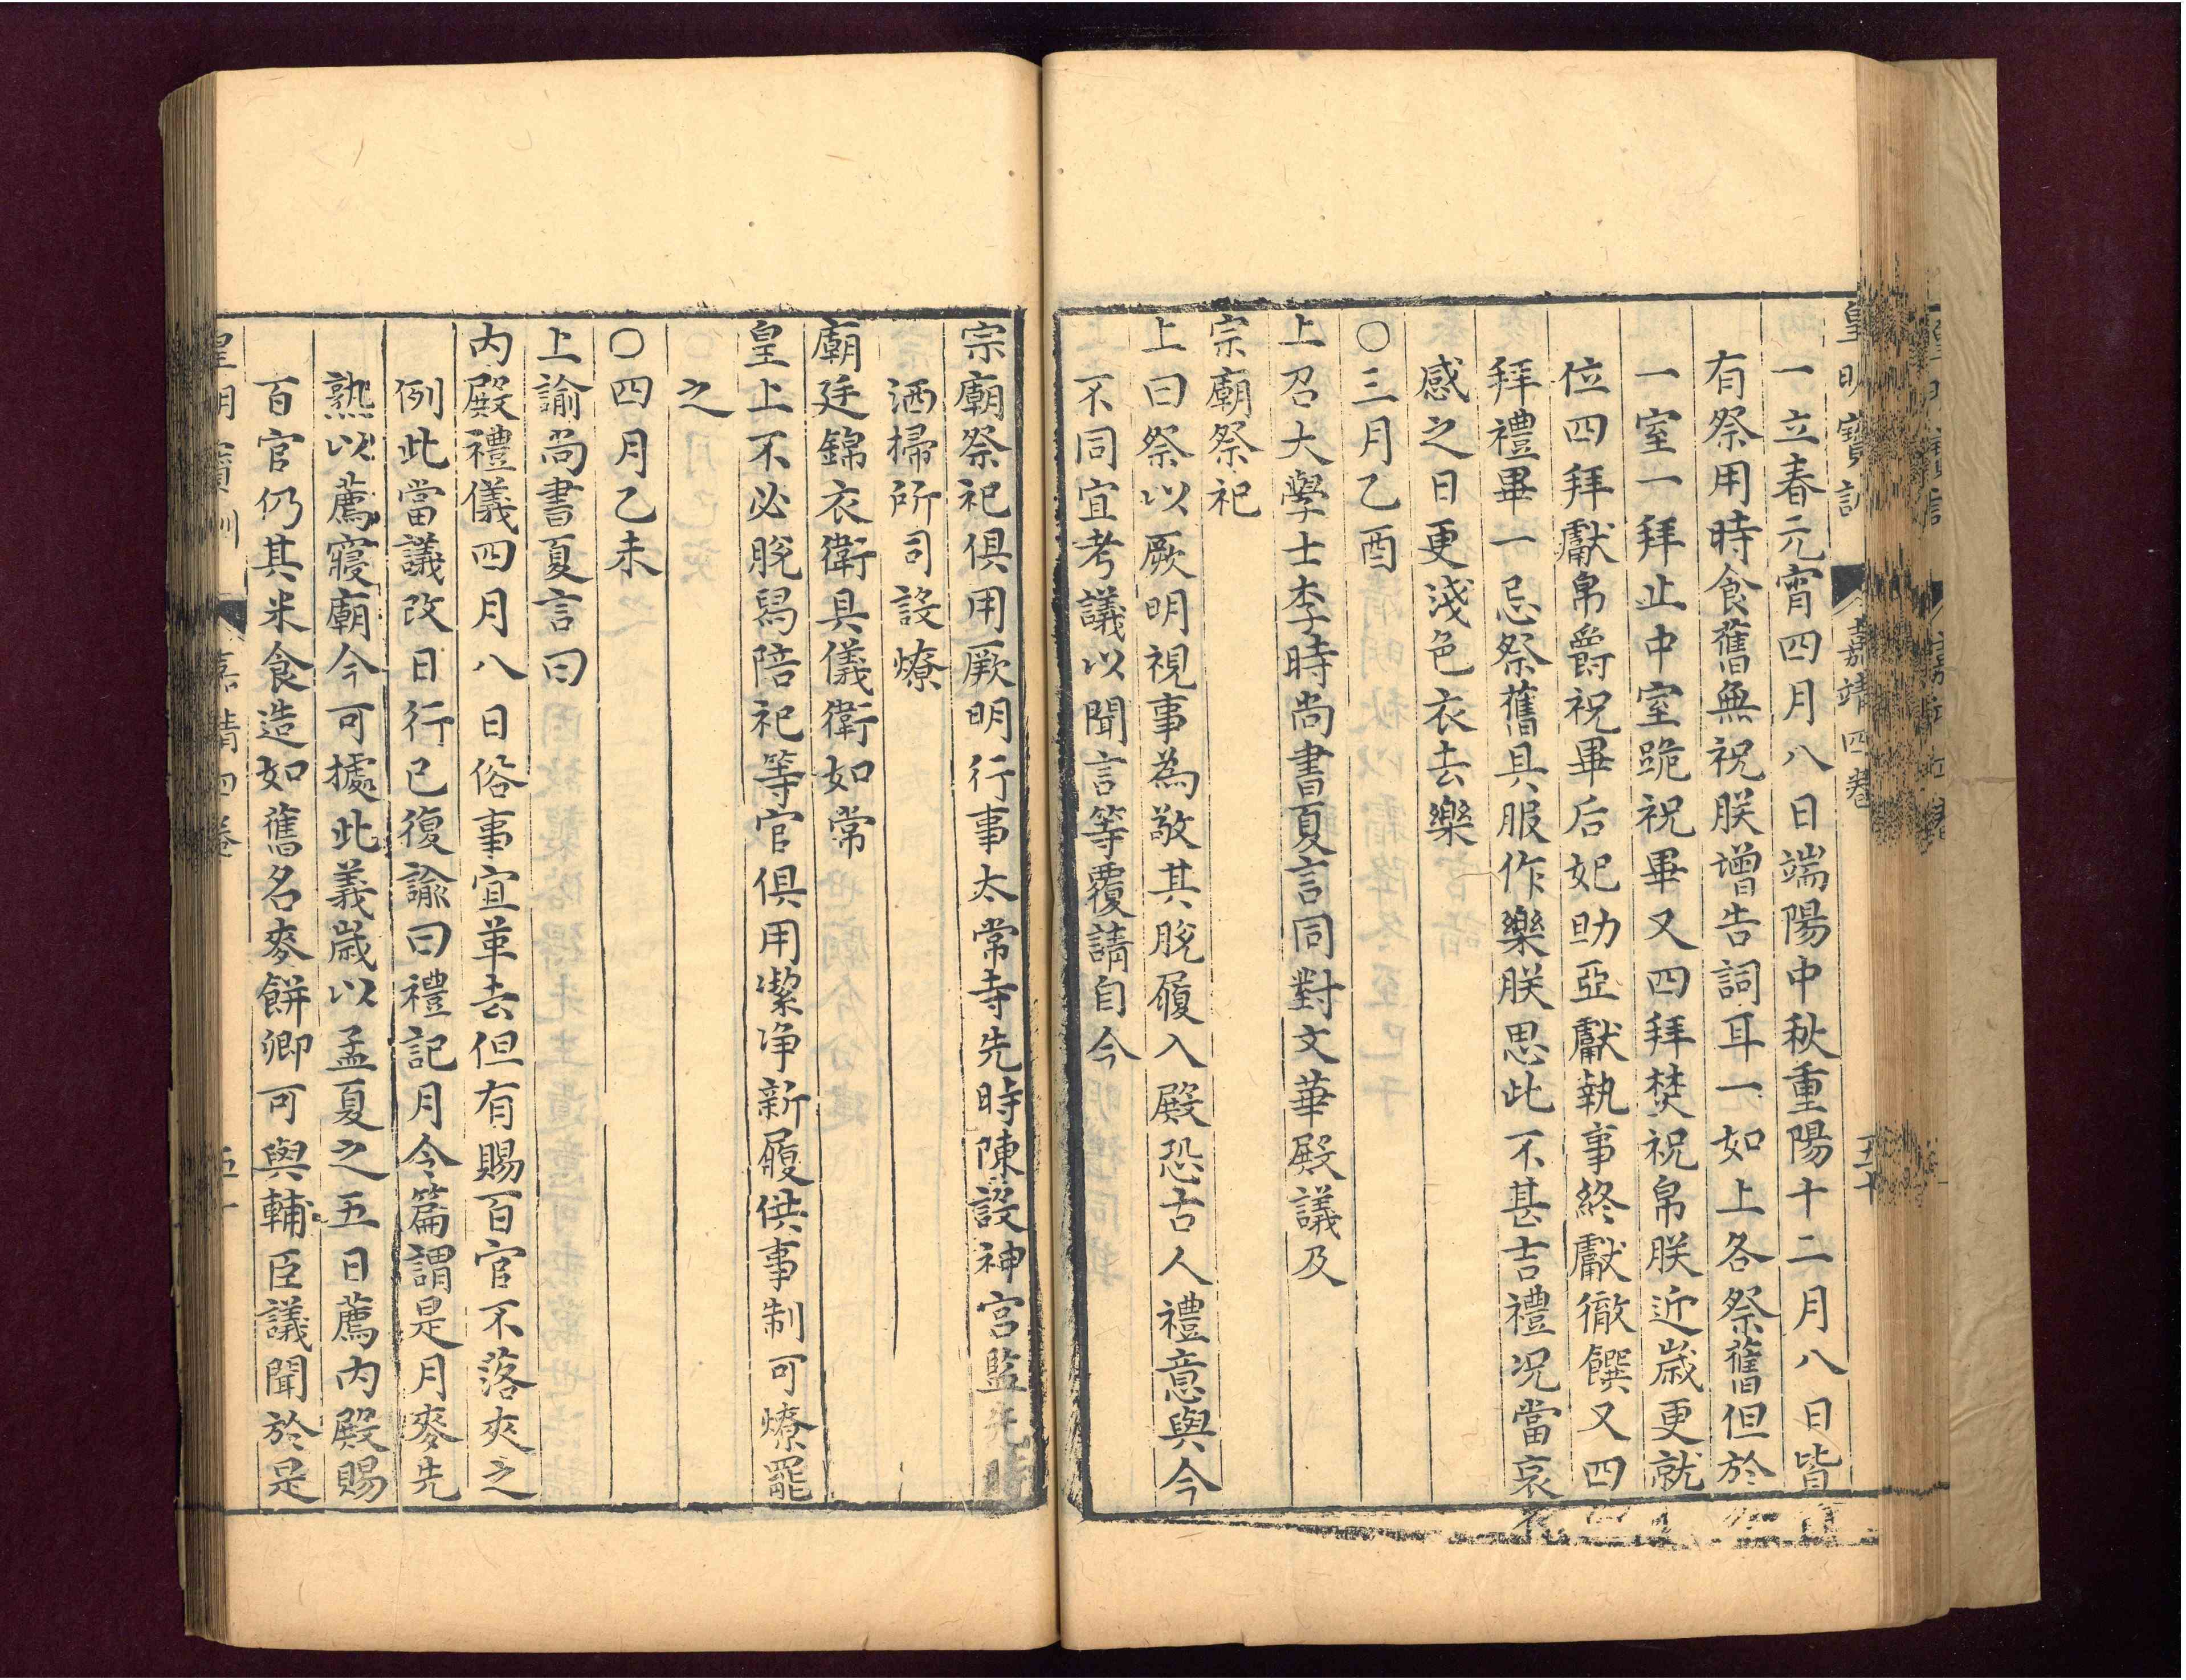 皇明寶訓 嘉靖四卷 五十
一立春元宵四月八日端陽中秋重陽十二月八日皆
有祭用時食舊無祝朕增告詞耳一如上各祭舊但於
一室一拜止中室跪祝畢又四拜焚祝帛朕近歲更就
位四拜獻帛爵祝畢后妃助亞獻執事終獻徹饌又四
拜禮畢一忌祭舊具服作樂朕思此不甚吉禮況當哀
感之日更淺色衣去樂
○三月乙酉
上召大學士李時尚書夏言同對文華殿議及
宗廟祭祀
上曰祭以厥明視事為敬其脫履入殿恐古人禮意與今
不同宜考議以聞言等覆請自今
宗廟祭祀俱用厥明行事太常寺先時陳設神宮監先時
洒掃所司設燎
廟廷錦衣衛具儀衛如常
皇上不必脫舄陪祀等官俱用潔净新履供事制可燎罷
之
○四月乙未
上諭尚書夏言曰
内殿禮儀四月八日俗事宜革去但有賜百官不落夾之
例此當議改日行已復諭曰禮記月令篇謂是月麥先
熟以薦寢廟今可據此義歲以孟夏之五日薦内殿賜
百官仍其米食造如舊名麥餅卿可與輔臣議聞於是
皇明寶訓 嘉靖四卷